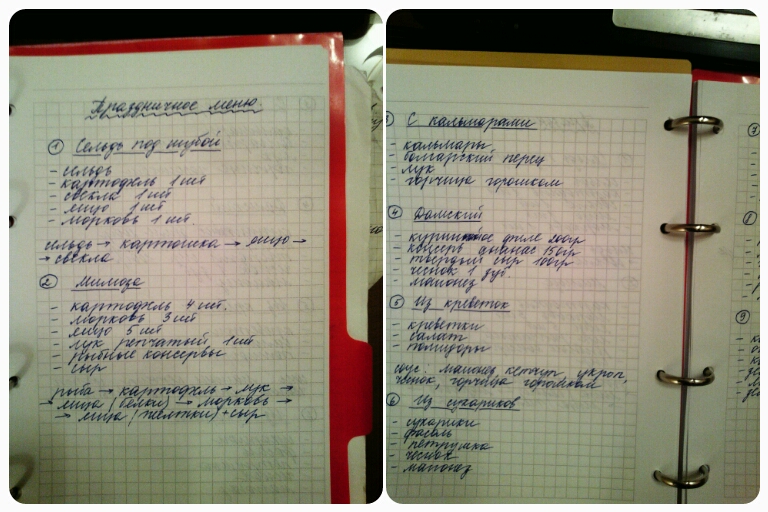 Праздничное меню.
1 Сельдь под шубой
- сельдь
- картофель 1 шт
- свекла 1 шт
- яйцо 1 шт
- морковь 1 шт.
сельдь → картошка → яйцо →
→ свекла
2 Мимоза
- картофель 4 шт.
- морковь 3 шт
- яйцо 5 шт
- лук репчатый 1 шт
- рыбные консервы
- сыр
рыба → картофель → лук →
→ яйца (белки) → морковь →
→ яйца (желтки) + сыр
3 С кальмарами
- кальмары
- болгарский перец
- лук
- горчица горошком
4 Дамский
- куриное филе 200гр
- консерв ананас 150гр
- твёрдый сыр 100гр
- чеснок 1 зуб.
- майонез
5 Из креветок
- креветки
- салат
- помидоры
соус: майонез, кетчуп, укроп,
чеснок, горчица горошком
6 Из сухариков
- сухарики
- фасоль
- петрушка
- чеснок
- майонез
7
8
9